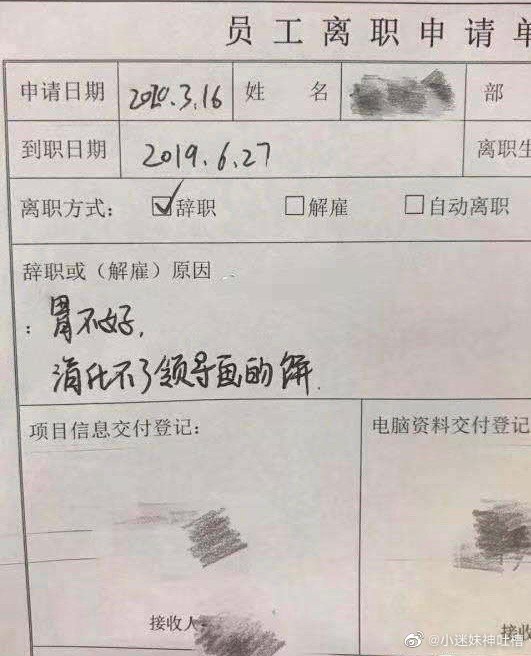 员工离职申请单
申请日期 2020.3.16 姓 名 部
到职日期 2019.6.27 离职生
离职方式： ☑辞职 □解雇 □自动离职
辞职或（解雇）原因
：胃不好，
消化不了领导画的饼.
项目信息交付登记： 电脑资料交付登记
接收人 接收
@小迷妹神吐槽